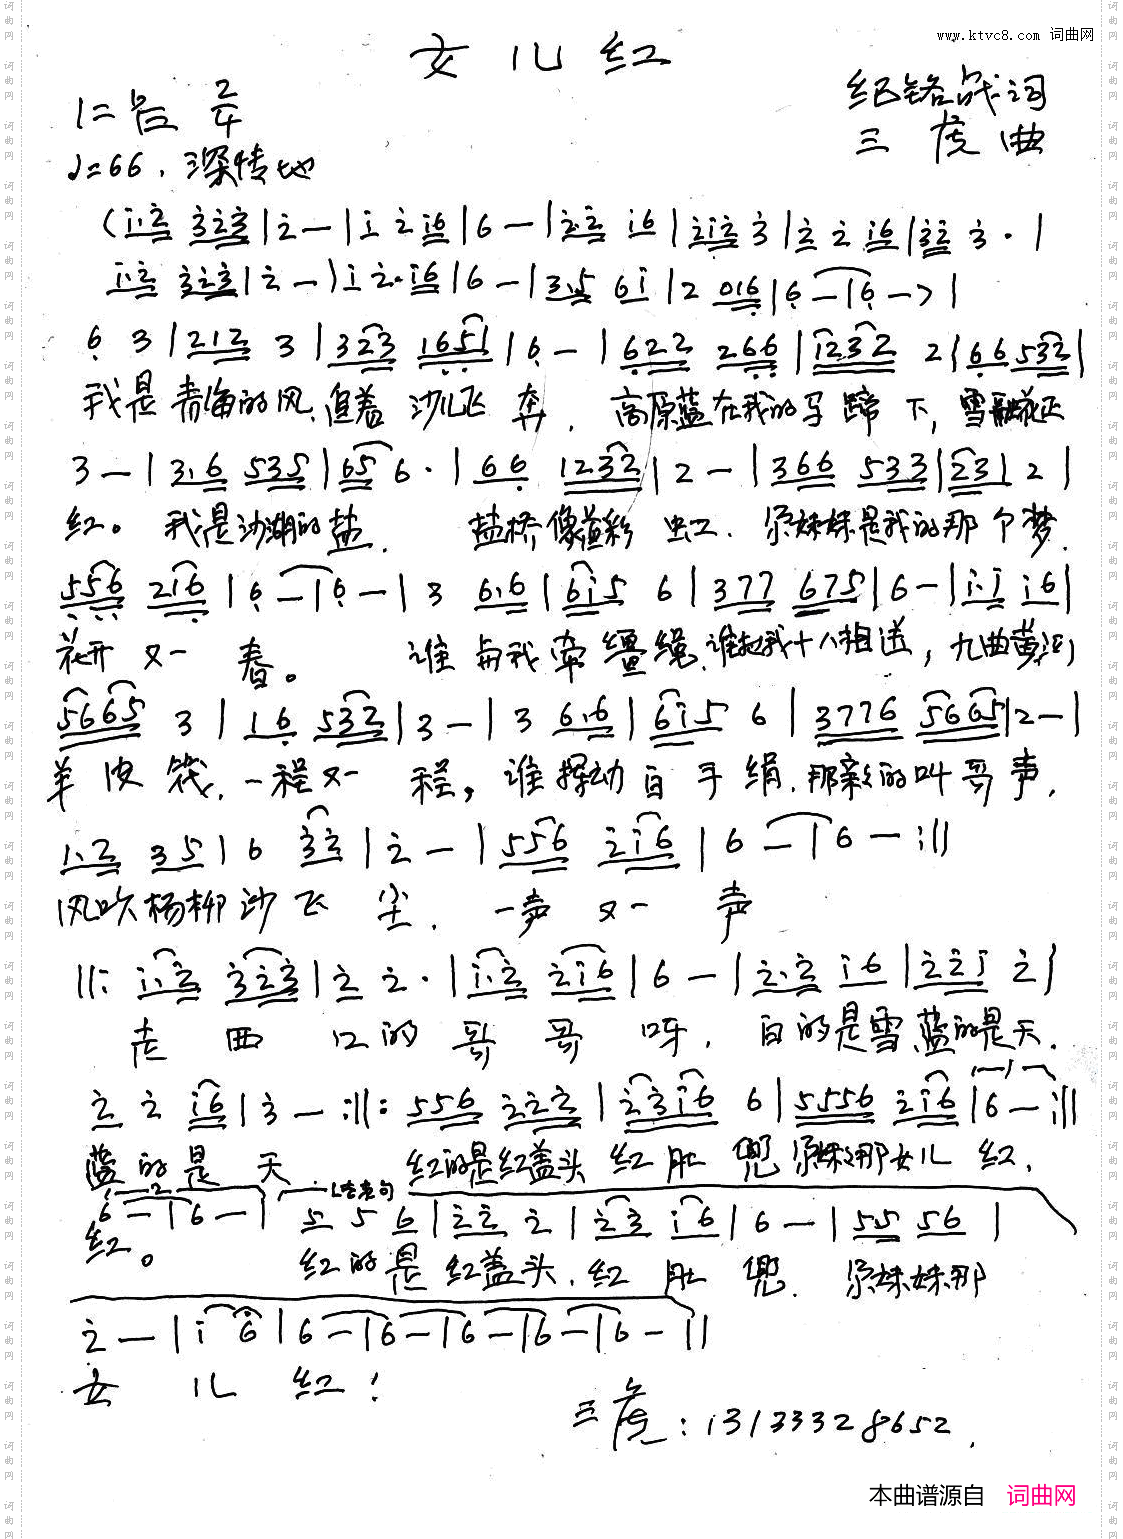 www.ktvc8.com 词曲网
女儿红
1=♭B 2/4
纪铭战词
♩=66. 深情地
三虎曲
(i·2 323|2 —|i 2 i6|6 —|2·2 i6|2i2 3|2 2 i6|32 3 ·|
i·2 323|2 —|i 2· i6|6 —|3·5 6i|2 016|6 —|6 —>|
6 3|212 3|323 1651|6 —|622 266|1232 2|66 532|
我是青海的风,但着 沙儿飞 奔, 高原蓝在我的马蹄 下,雪融花正
3 —|3·6 535|65 6 ·|66 1232|2 —|366 533|23 2|
红。 我是沙湖的盐, 盐桥像道彩 虹. 尕妹妹是我的那 个梦.
556 216|6 —|6 —|3 6·6|6i5 6|377 675|6 —|i·i i6|
花开 又一 春。 谁 与我 牵 缰绳,谁起我十八相送, 九曲黄河
5665 3|16 532|3 —|3 6·6|6i5 6|3776 5665|2 —|
羊皮筏,一程又一 程, 谁 挥动 白 手 绢.那亲亲的叫哥声,
1·2 35|6 33|2 —|556 2i6|6 —|6 — :||
风吹杨柳沙飞 尘, 一声 又一 声
||: i·2 323|2 2 ·|i·2 2i6|6 —|2·2 i6|22i 2|
走 西 口的 哥 哥 呀, 白的是雪,蓝的是天.
2 2 i6|3 — :||: 556 223|23i6 6|5556 2i6|6 — :||
蓝的是 天 红的是红盖头 红 肚 兜 尕妹妹那女儿 红,
6 —|6 —| 结束句 5 5 6|22 2|23 i6|6 —|55 56|
红。 红的是 红盖头.红 肚 兜. 尕妹妹那
2 —|i 6|6 —|6 —|6 —|6 —|6 —||
女 儿 红!
三虎:13133328652.
本曲谱源自 词曲网